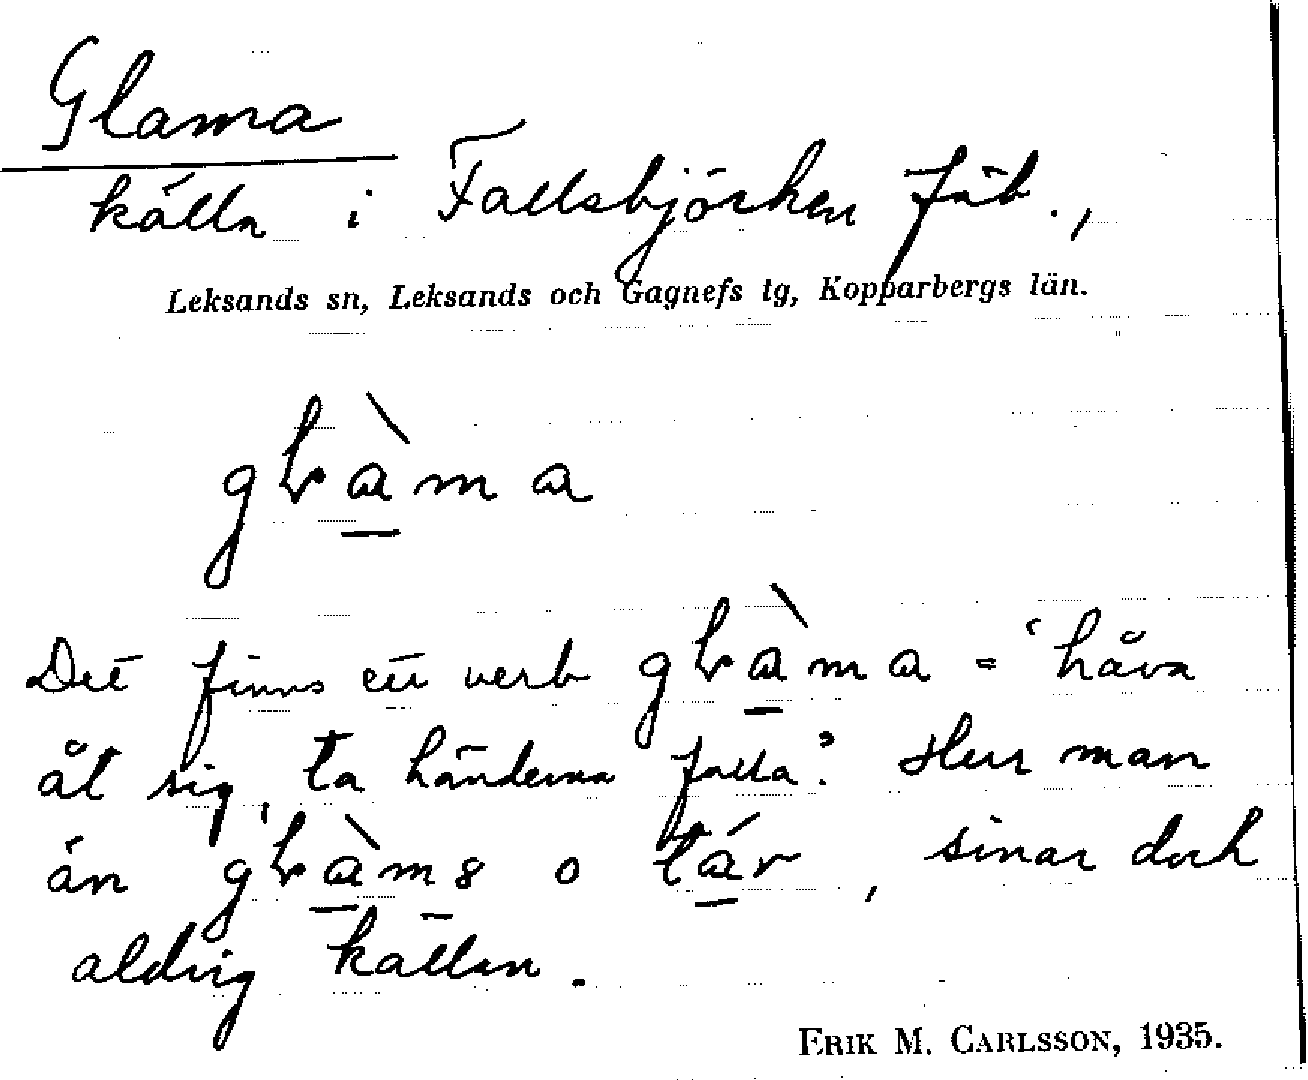 Glama
källa i Fallsbjörken fäb.,
Leksands sn, Leksands och Gagnefs tg, Kopparbergs län.
glàma
Det finns ett verb glàma = 'håva
åt sig, ta händerna fulla'. Hur man
än glàms o tár, sinar dock
aldrig källan.
ERIK M. CARLSSON, 1935.